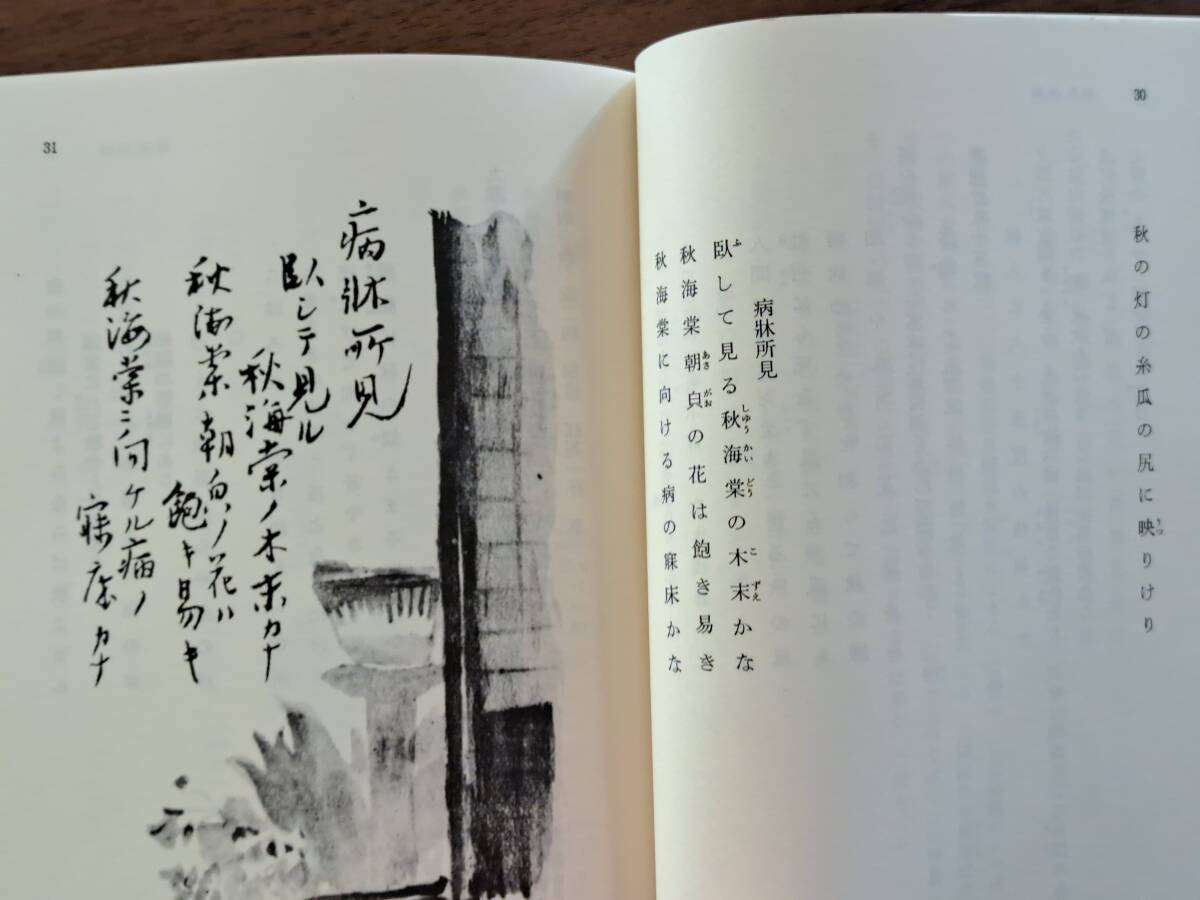 30
秋の灯の糸瓜の尻に映りけり
病牀所見
臥して見る秋海棠の木末かな
秋海棠朝皃の花は飽き易き
秋海棠に向ける病の寐床かな
31
病牀所見
臥シテ見ル
秋海棠ノ木末カナ
秋海棠朝皃ノ花ハ
飽キ易キ
秋海棠ニ向ケル病ノ
寐床カナ